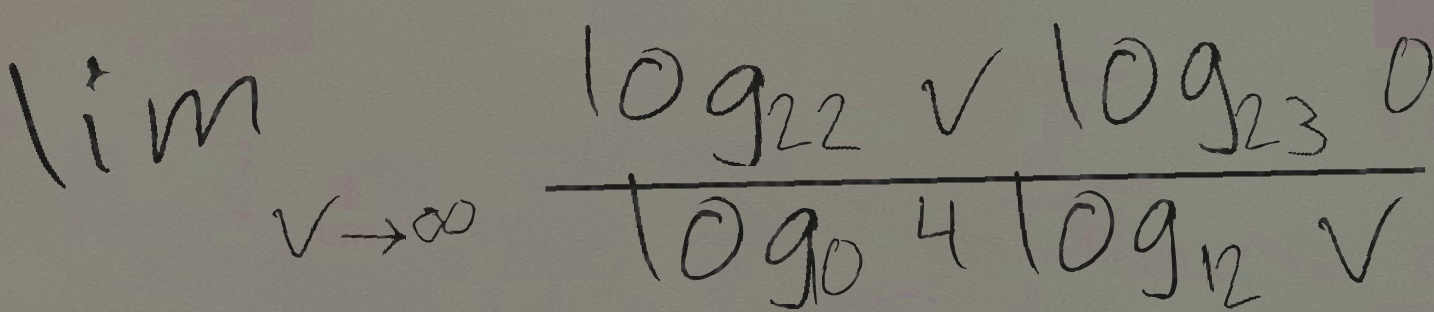 lim v→∞ log₂₂ v log₂₃ 0 / log₀ 4 log₁₂ v